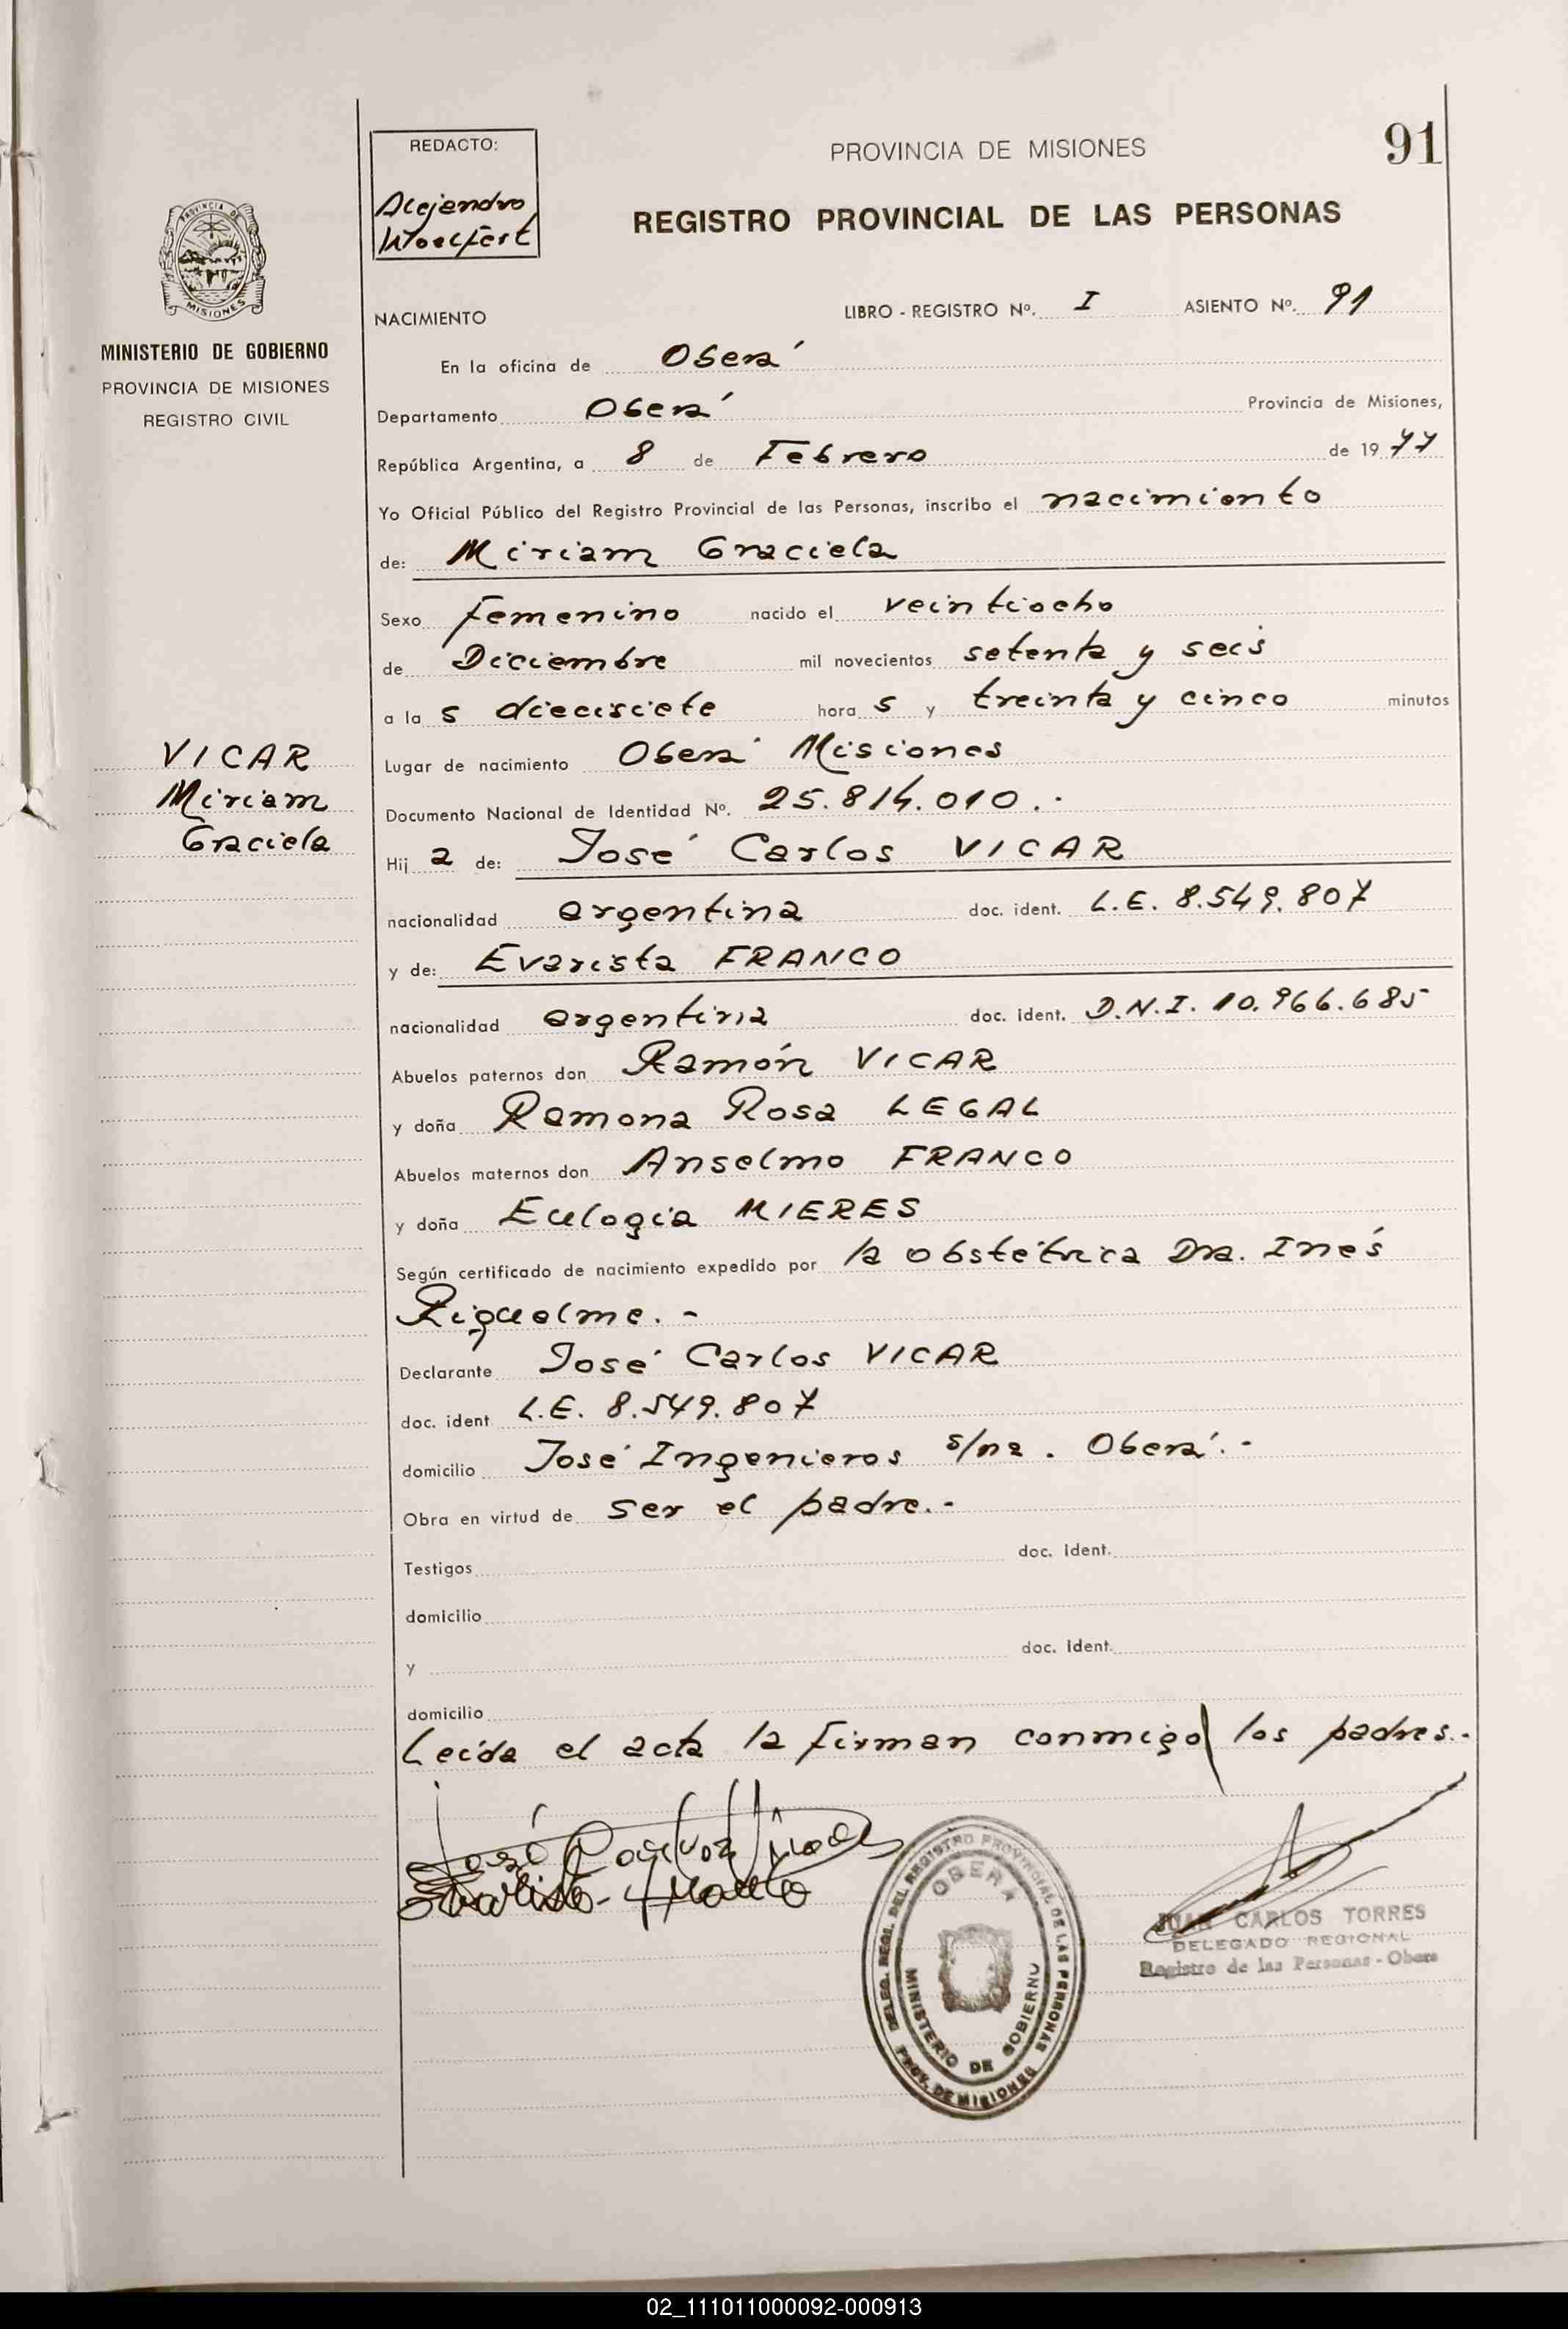 91
PROVINCIA DE MISIONES
REGISTRO PROVINCIAL DE LAS PERSONAS
REDACTO:
Alejandro
Woelfert
PROVINCIA DE
MISIONES
MINISTERIO DE GOBIERNO
PROVINCIA DE MISIONES
REGISTRO CIVIL
NACIMIENTO LIBRO - REGISTRO Nº. I ASIENTO Nº. 91
En la oficina de Oberá
Departamento Oberá Provincia de Misiones,
República Argentina, a 8 de Febrero de 19 77
Yo Oficial Público del Registro Provincial de las Personas, inscribo el nacimiento
de: Miriam Graciela
Sexo femenino nacido el veintiocho
de Diciembre mil novecientos setenta y seis
a la s diecisiete hora s y treinta y cinco minutos
VICAR
Miriam
Graciela
Lugar de nacimiento Oberá Misiones
Documento Nacional de Identidad Nº. 25.814.010.-
Hij a de: José Carlos VICAR
nacionalidad argentina doc. ident. L.E. 8.549.807
y de: Evarista FRANCO
nacionalidad argentina doc. ident. D.N.I. 10.966.685
Abuelos paternos don Ramón VICAR
y doña Ramona Rosa LEGAL
Abuelos maternos don Anselmo FRANCO
y doña Eulogia MIERES
Según certificado de nacimiento expedido por la obstétrica Dra. Inés
Riquelme.-
Declarante José Carlos VICAR
doc. ident L.E. 8.549.807
domicilio José Ingenieros s/na. Oberá.-
Obra en virtud de ser el padre.-
Testigos doc. ident.
domicilio
y doc. ident.
domicilio
Leída el acta la firman conmigo los padres.-
José Carlos
Evarista Franco
DELEG. REGI. DEL REGISTRO PROVINCIAL DE LAS PERSONAS
OBERA
MINISTERIO DE GOBIERNO
PROV. DE MISIONES
JUAN CARLOS TORRES
DELEGADO REGIONAL
Registro de las Personas - Obera
02_111011000092-000913